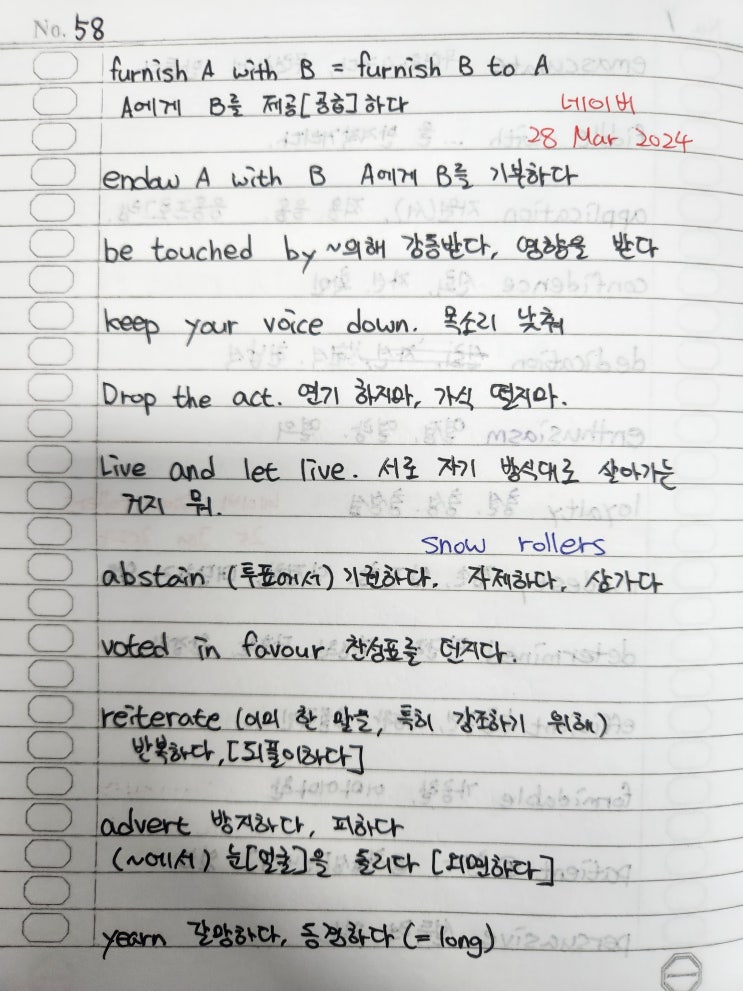 No. 58
furnish A with B = furnish B to A
A에게 B를 제공[공급]하다
네이버
28 Mar 2024
endow A with B A에게 B를 기부하다
be touched by ~의해 감동받다, 영향을 받다
keep your voice down. 목소리 낮춰
Drop the act. 연기 하지마, 가식 떨지마.
Live and let live. 서로 자기 방식대로 살아가는
거지 뭐.
snow rollers
abstain (투표에서) 기권하다, 자제하다, 삼가다
voted in favour 찬성표를 던지다.
reiterate (이미 한 말을, 특히 강조하기 위해)
반복하다, [되풀이하다]
advert 방지하다, 피하다
(~에서) 눈[얼굴]을 돌리다 [외면하다]
yearn 갈망하다, 동경하다 (= long)